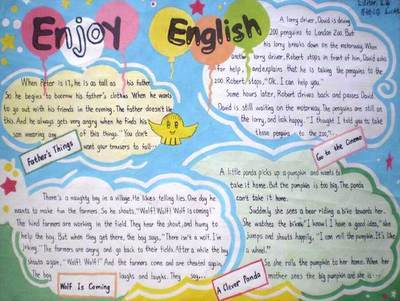 Enjoy English
Editor:
When Peter is 17, he is as tall as his father.
So he begins to borrow his father's clothes when he wants
to go out with his friends in the evening. The father doesn't like
this. And he always gets very angry when he finds his
son wearing any of this things. "You don't
want your trousers to fall
Father's Things
A lorry driver, David is driving
200 penguins to London Zoo. But
his lorry breaks down on the motorway. When
another lorry driver, Robert stops in front of him, David asks
for help, and explains that he is taking the penguins to the
zoo. Robert stops, "Ok. I can help you."
Some hours later, Robert drives back and passes David
David is still waiting on the motorway. The penguins are still on
the lorry, and look happy. "I thought I told you to take
those penguins to the zoo"
Go to the Cinema
There's a naughty boy in a village. He likes telling lies. One day he
wants to make fun the farmers. So he shouts, "Wolf! Wolf! Wolf is coming!"
The kind farmers are working in the field. They hear the shout, and hurry to
help the boy. But when they get there, the boy says, "There isn't a wolf. I'm
joking." The farmers are angry and go back to their fields. After a while the boy
shouts again, "Wolf! Wolf!" And the farmers come and are cheated again.
The boy laughs and laughs. They say
Wolf Is Coming
A little panda picks up a pumpkin and wants to
take it home. But the pumpkin is too big. The panda
can't take it home.
Suddenly she sees a bear riding a bike towards her.
She watches the bike. "I know! I have a good idea." she
jumps and shouts happily, "I can roll the pumpkin. It's like
a wheel."
So she rolls the pumpkin to her home. When her
mother sees the big pumpkin and she is
A Clever Panda